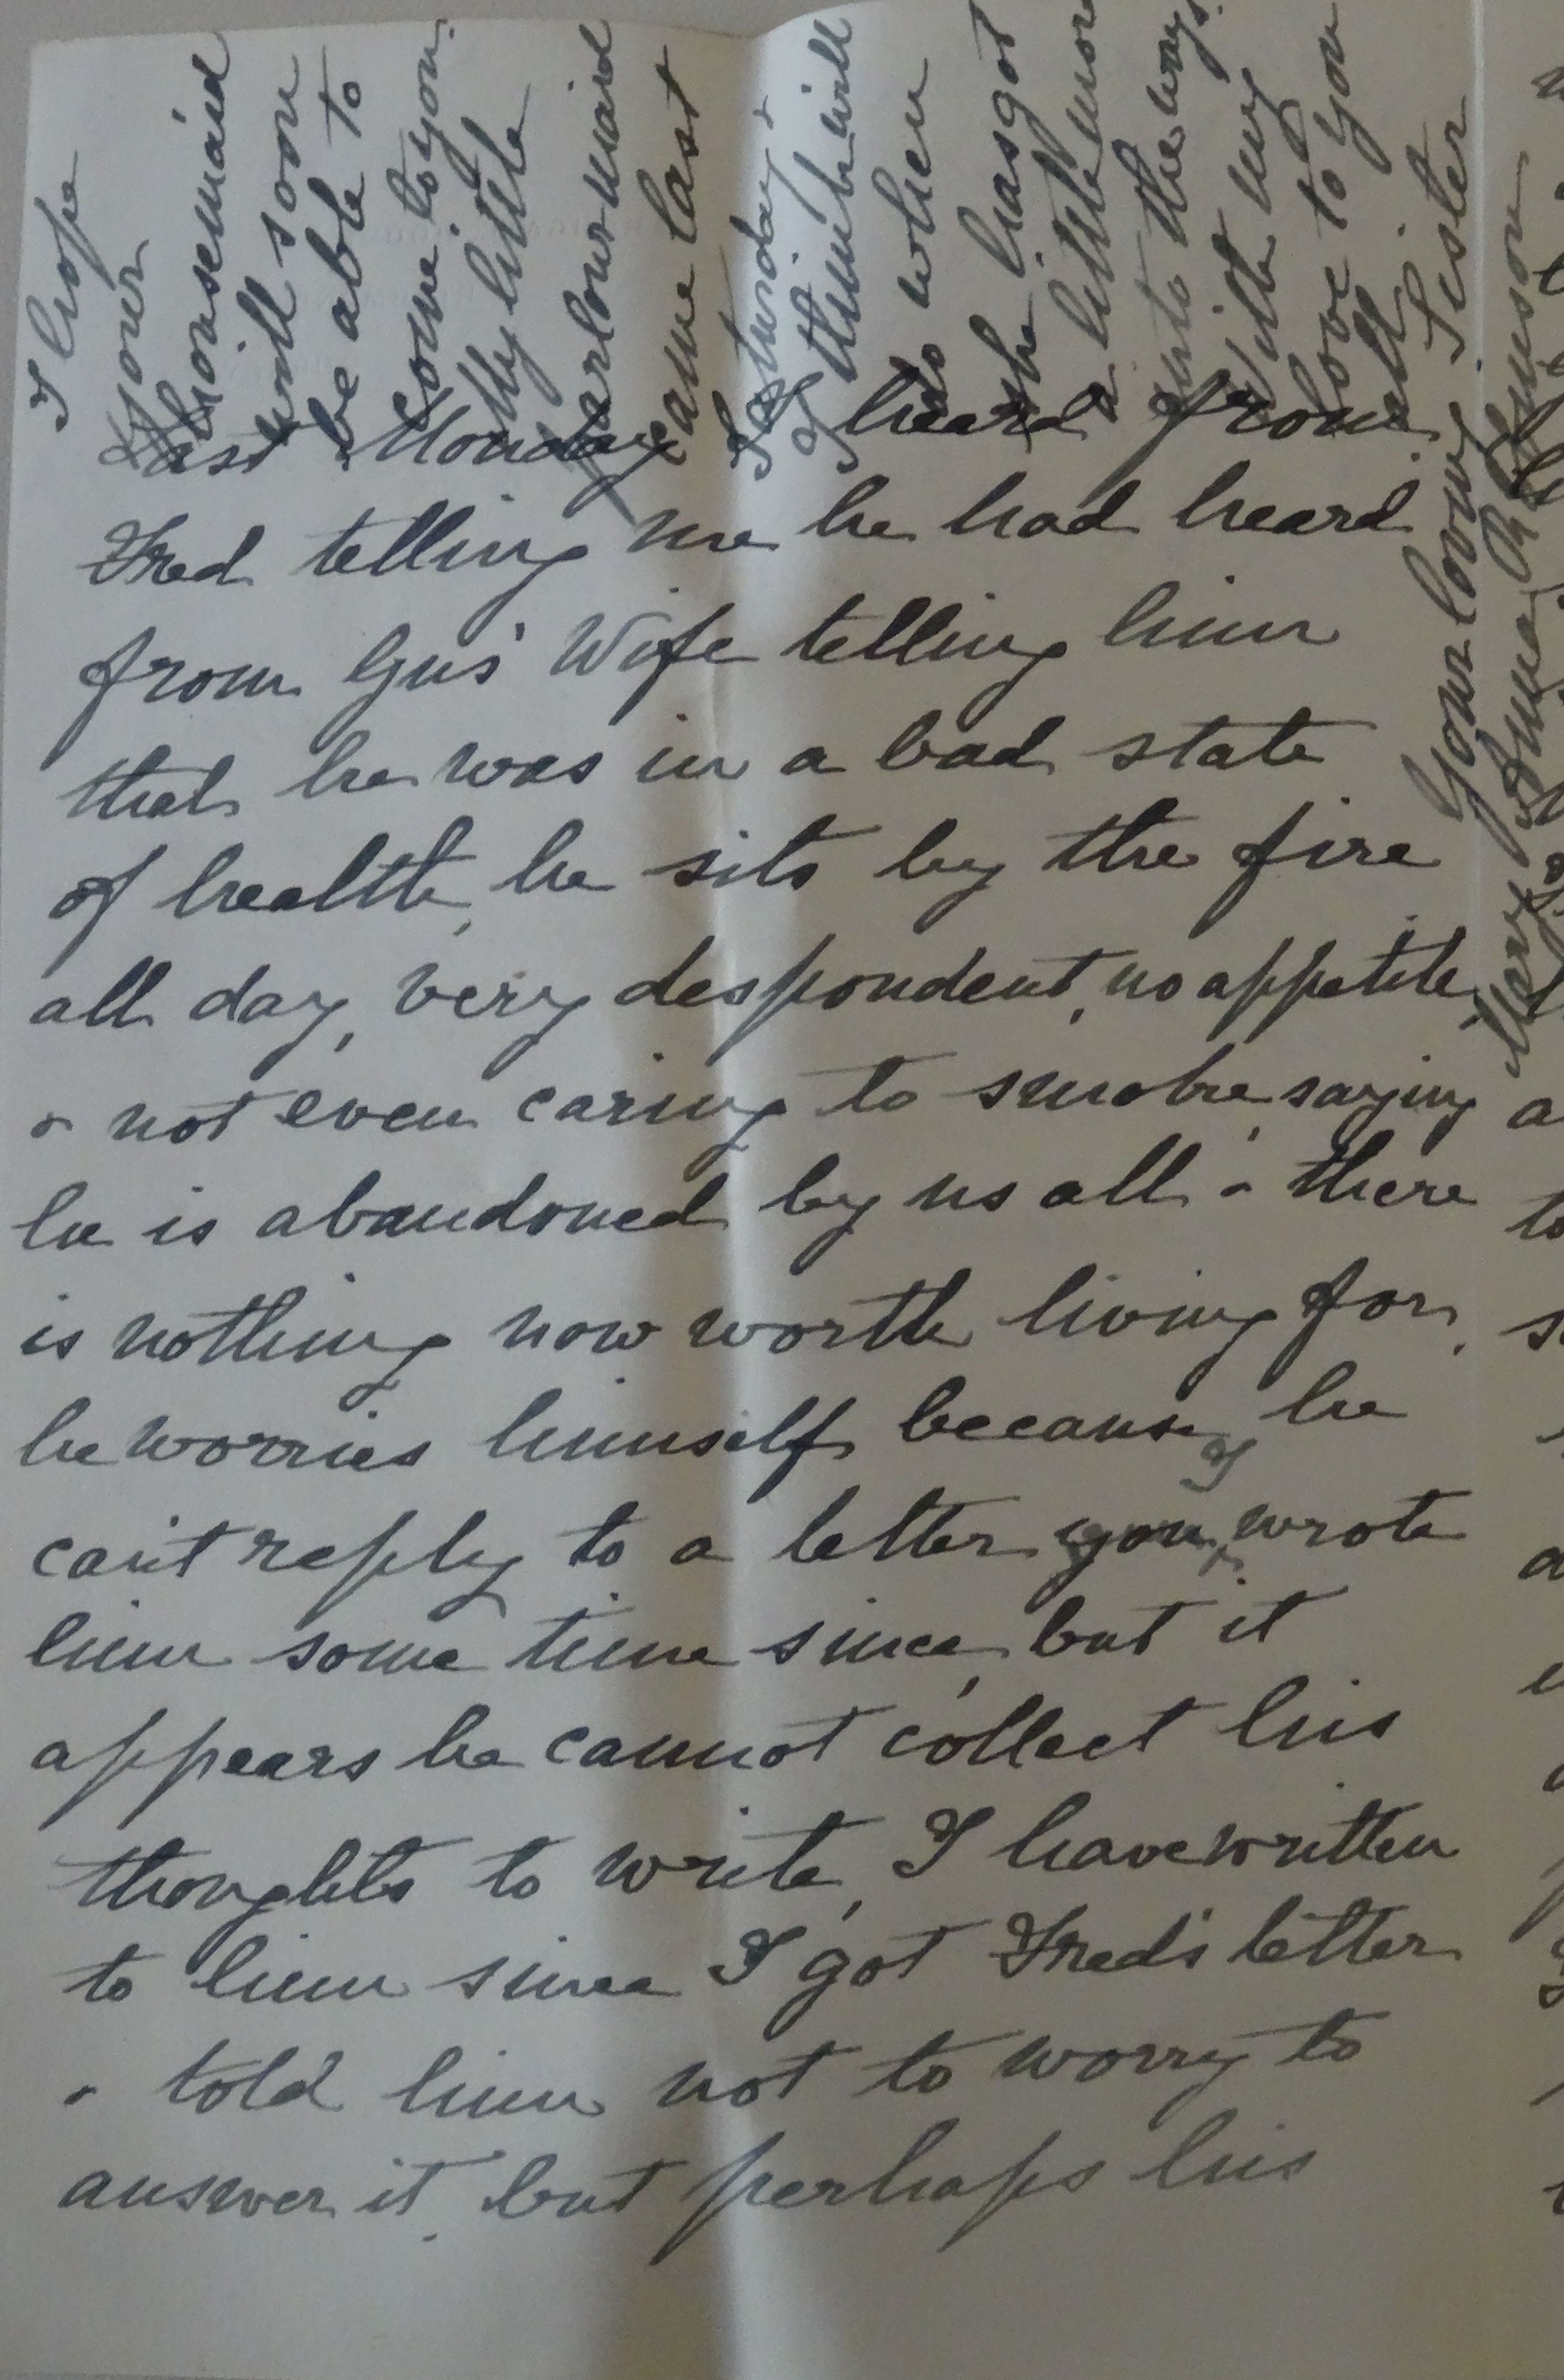 Last Monday I heard from
Fred telling me he had heard
from Gus' Wife telling him
that he was in a bad state
of health, he sits by the fire
all day, very despondent, no appetite,
& not even caring to smoke, saying
he is abandoned by us all & there
is nothing now worth living for,
he worries himself because he
can't reply to a letter you I wrote
him some time since, but it
appears he cannot collect his
thoughts to write, I have written
to him since I got Fred's letter
& told him not to worry to
answer it, but perhaps his
I hope
your
housemaid
will soon
be able to
come to you.
My little
parlourmaid
came last
Saturday &
I think will
do when
she has got
a little more
into the ways.
With my
love to you
all.
Your loving Sister
Mary Anna